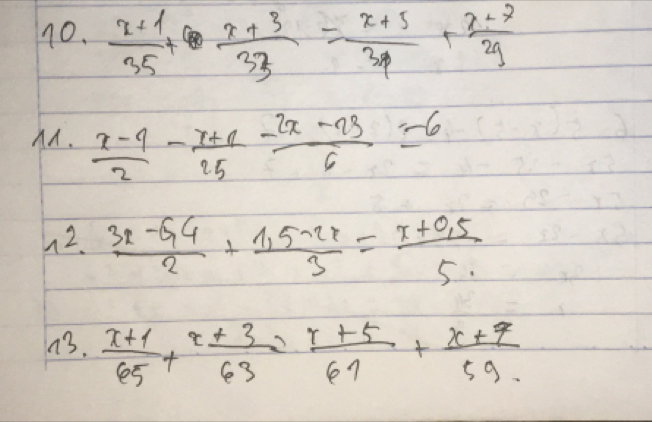 10. (x+1)/35 + (x+3)/33 = (x+5)/31 + (x+7)/29
11. (x-1)/2 - (x+1)/25 - (2x-23)/6 = -6
12. (3x-0,4)/2 + (1,5-2x)/3 = (x+0,5)/5.
13. (x+1)/65 + (x+3)/63 = (x+5)/61 + (x+7)/59.